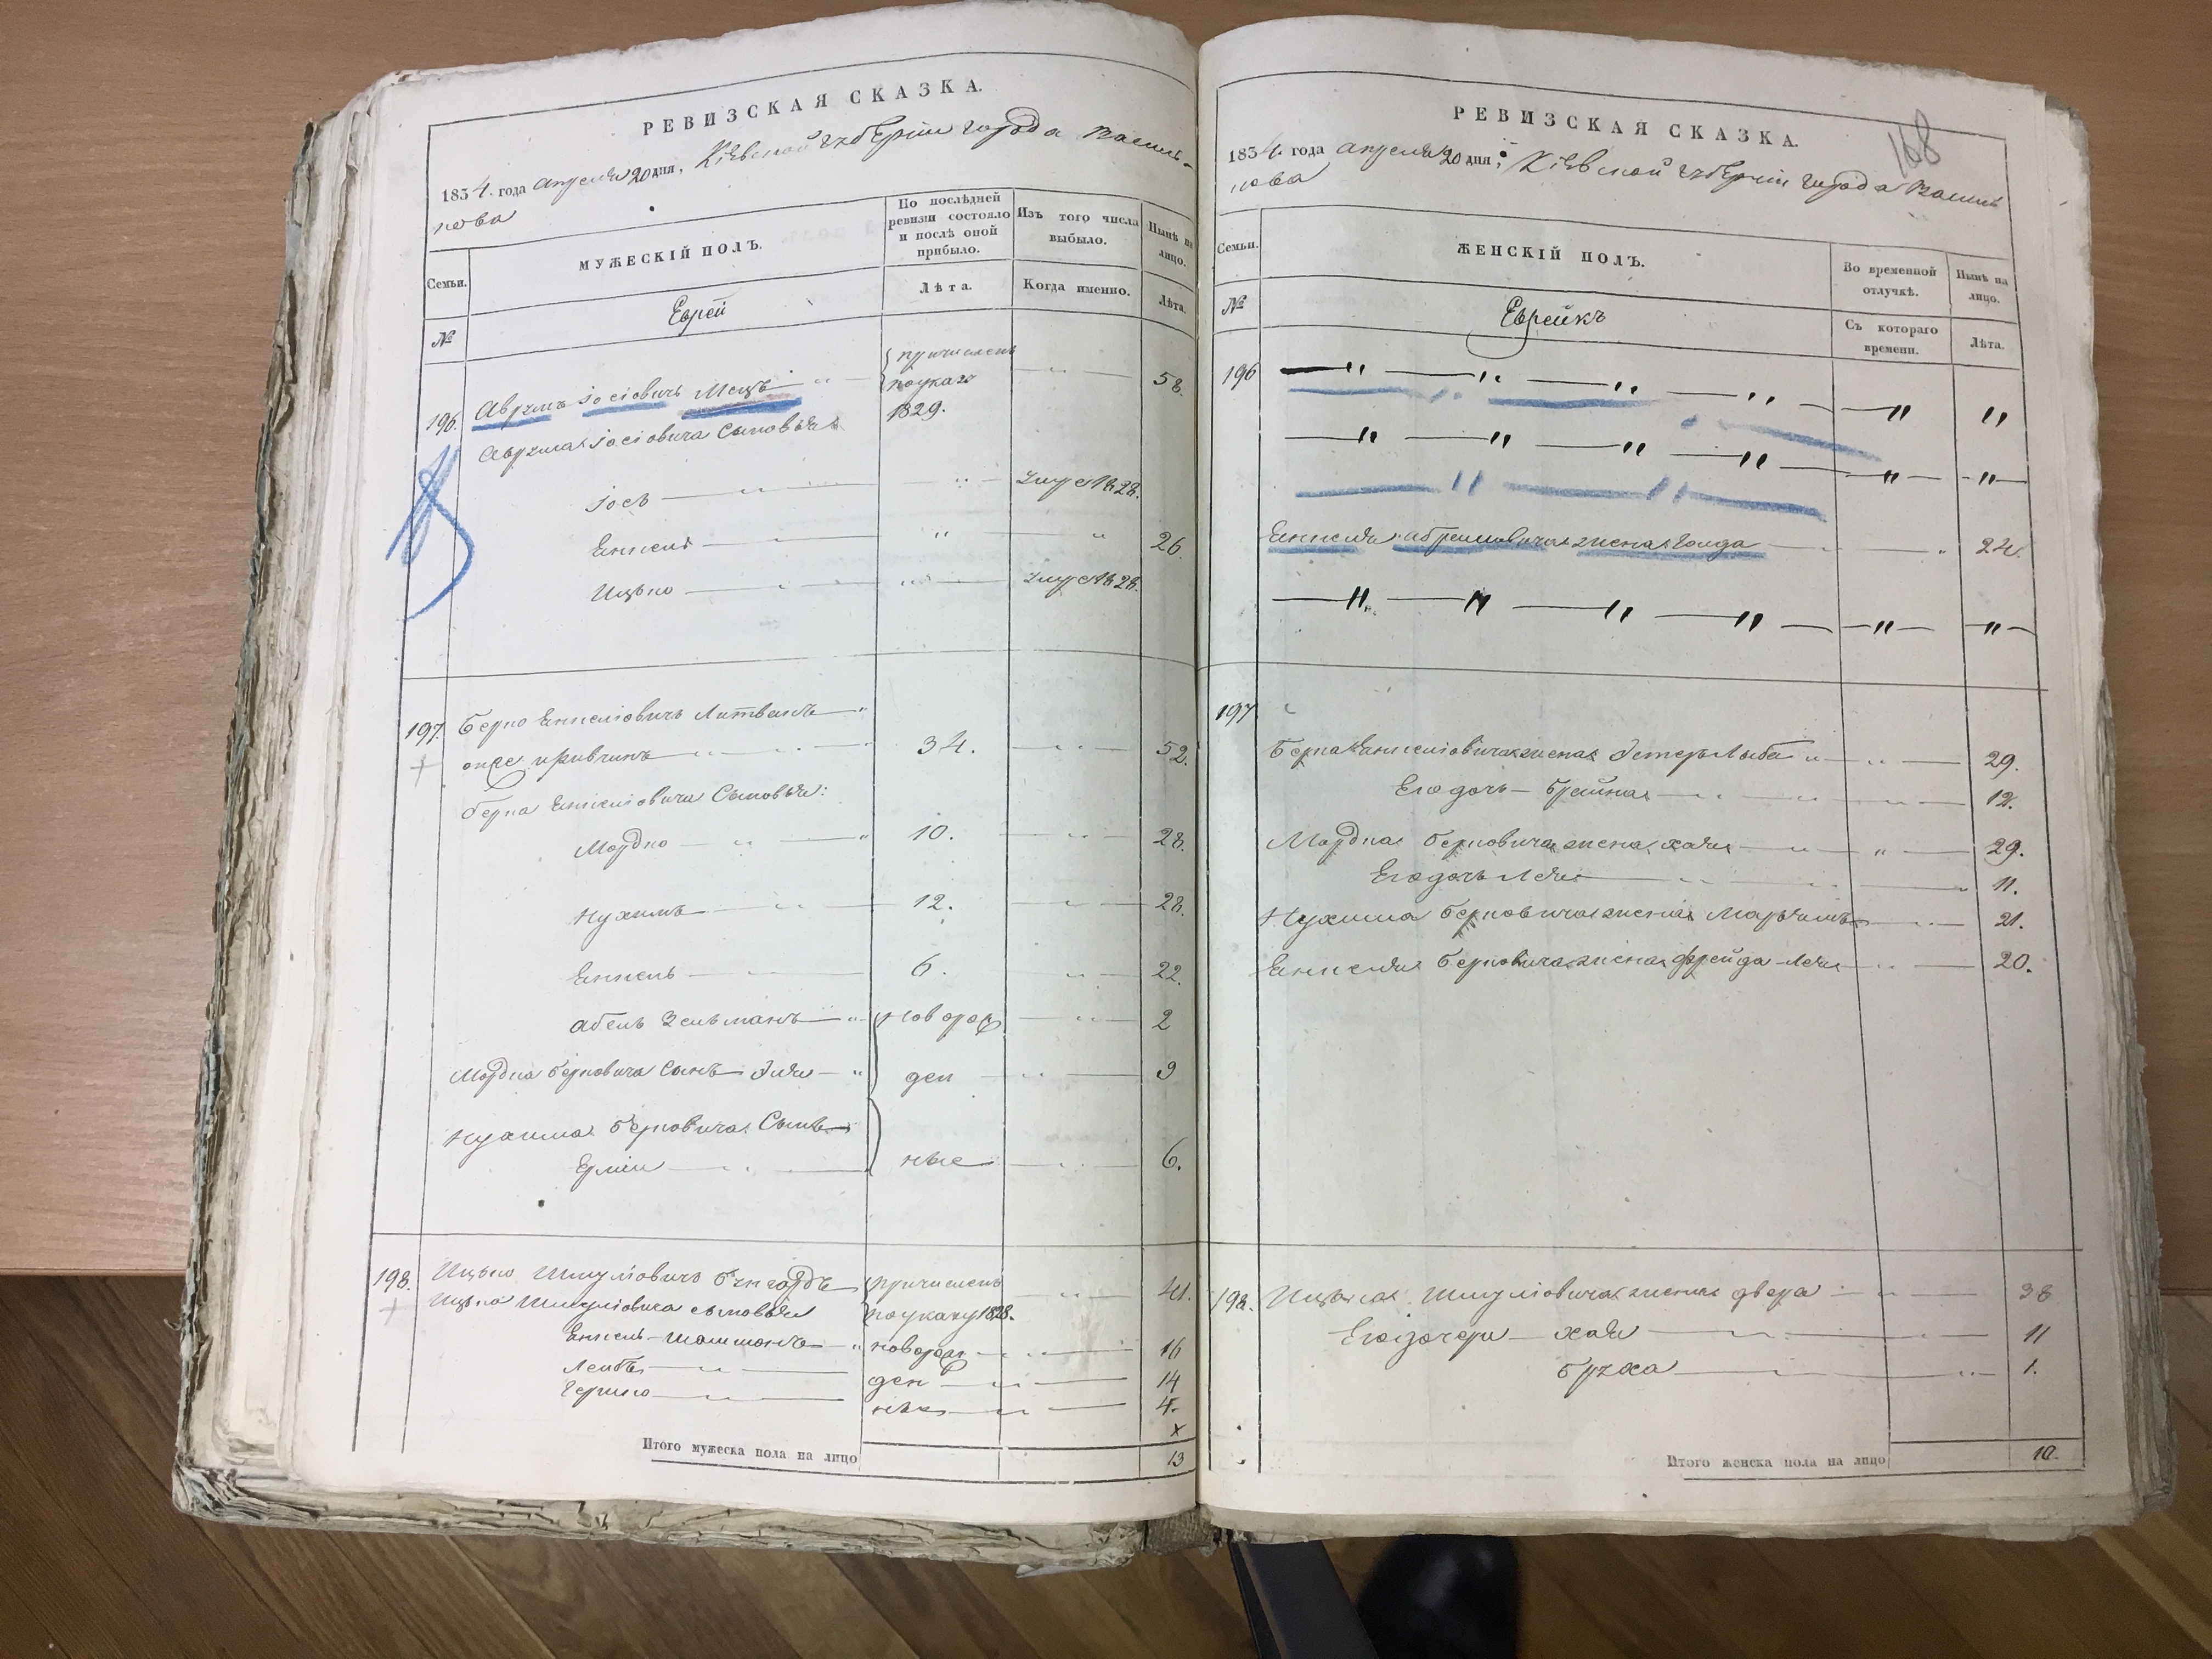 РЕВИЗСКАЯ СКАЗКА.
1834. года апреля 20 дня, Кіевской губерніи города Василь-
кова
Семьи.
МУЖЕСКІЙ ПОЛЪ.
По послѣдней ревизіи состояло и послѣ оной прибыло.
Изъ того числа выбыло.
Нынѣ на лицо.
№
Еврей
Лѣта.
Когда именно.
Лѣта.
196. Аврумъ Іосіовичъ Мецъ причисленъ по указу 1829. 58.
Аврума Іосіовича Сыновья
Іось умре 1828.
Енкель 26.
Ицько умре 1828.
197. Берко Енкеліовичъ Литвакъ
онже Кравчикъ 34. 52.
Берка Енкеліовича Сыновья:
Мордко 10. 28.
Нухимъ 12. 28.
Енкель 6. 22.
Абель Зельманъ новорож 2
Мордка Берковича Сынъ Эля ден 9
Нухима Берковича Сынъ
ные 6.
198. Ицько Шмуліовичъ причисленъ 41.
Ицька Шмуліовича сыновья по указу 1828.
Енкель-Шолимонъ новорож 16
Лейба ден 14
Гершко ные 4.
х
Итого мужеска пола на лицо 13
168
РЕВИЗСКАЯ СКАЗКА.
1834. года апреля 20 дня, Кіевской губерніи города Василь
кова
Семьи.
ЖЕНСКІЙ ПОЛЪ.
Во временной отлучкѣ.
Нынѣ на лицо.
№
Еврейкъ
Съ котораго времени.
Лѣта.
196
Енкеля Абрамовича жена Голда 24.
197
Берка Енкеліовича жена Эстеръ Лыба 29.
Его дочь Брайна 12.
Мордка Берковича жена Хая 29.
Его дочь Лея 11.
Нухима Берковича жена Марьямъ 21.
Енкеля Берковича жена Фрейда-Лея 20.
198. Ицька Шмуліовича жена Двера 38
Его дочери Хая 11
Бруха 1.
Итого женска пола на лицо 10.